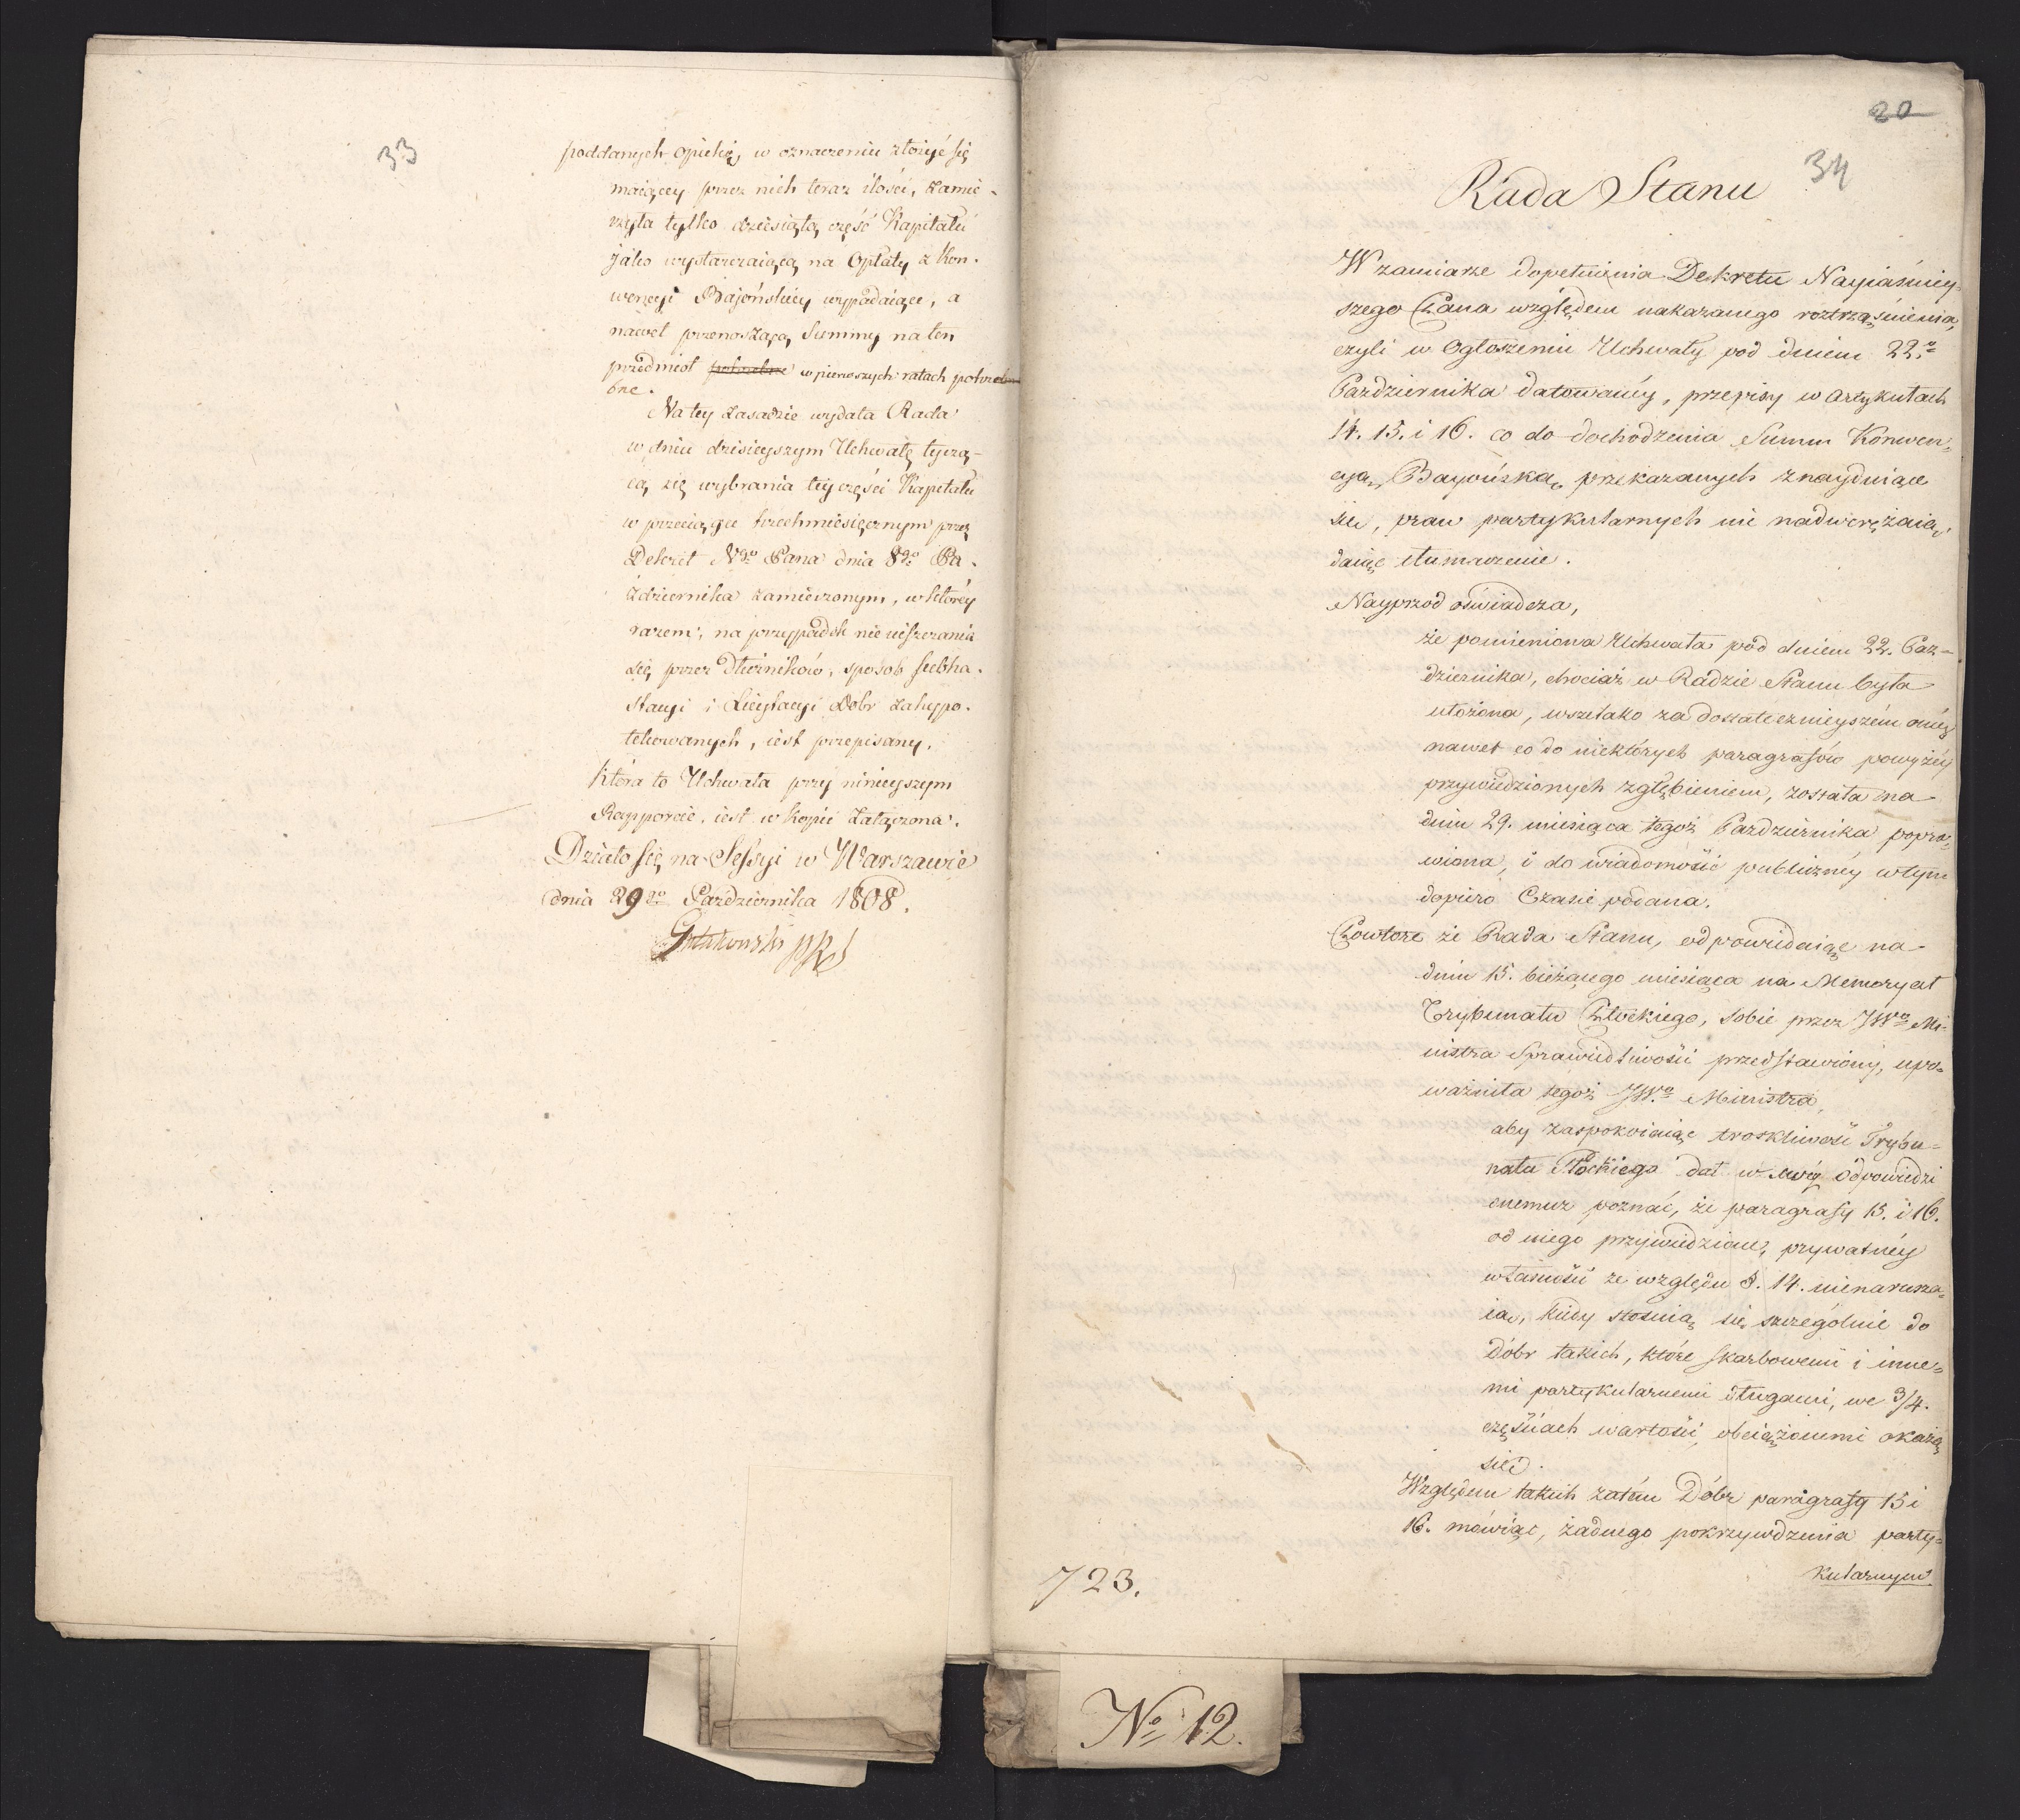 33
poddanych opiekę, w oznaczeniu złożyć się
maiącey przez nich teraz ilości, zamie-
rzyła tylko dziesiątą część Kapitału
jako wystarczaiącą na Opłaty z Kon-
wencyi Bajońskiey wypadaiące, a
nawet przenoszącą Summy na ten
przedmiot potrzebne w pierwszych ratach potrze
bne.
Na tey zasadzie wydała Rada
w dniu dzisieyszym Uchwałę tyczą-
cą się wybrania tey części Kapitału
w przeciągu trzechmiesięcznym przez
Dekret Ngo Pana dnia 8go Pa-
ździernika zamierzonym, w którey
razem, na przypadek nie uiszczania
się przez Dłużników, sposob subha-
stacyi i Licytacyi Dobr zahypo-
tekowanych, iest przepisany.
Która to Uchwała przy ninieyszym
Rapporcie, iest w kopii załączona.
Działo się na Sessyi w Warszawie
dnia 29go Października 1808.
Gutakowski PRS
20
34
Rada Stanu
W zamiarze dopełnienia Dekretu Nayiaśniey-
szego Pana względem nakazanego roztrząśnienia,
czyli w Ogłoszeniu Uchwały pod dniem 22o
Pazdziernika datowaney, przepisy w artykułach
14. 15. i 16. co do dochodzenia Summ Konwen-
cyą Bayońską przekazanych znayduiące
się, praw partykularnych nie nadwerężaią,
daiąc tłumaczenie.
Nayprzod oświadcza,
że pomieniona Uchwała pod dniem 22. Paz-
dziernika, chociaż w Radzie Stanu była
ułożona, wszelako za dostatecznieyszém oney
nawet co do niektórych paragrafów powyżéy
przywiedzionych zgłębieniem, została na
dniu 29. miesiąca tegoż Pazdziernika popra-
wiona, i do wiadomości publiczney w tym
dopiero Czasie podana.
Powtore że Rada Stanu, odpowiedaiąc na
dniu 15. bieżącego miesiąca na Memoryał
Trybunału Płockiego, sobie przez JWo Mi-
nistra Sprawiedliwości przedstawiony, upo-
ważniła tegoż JWo Ministra,
aby zaspokoiaiąc troskliwość Trybu-
nału Płockiego dał w swéy odpowiedzi
onemuz poznać, że paragrafy 15. i 16.
od niego przywiedzione, prywatnéy
własności ze względu §. 14. nienarusza-
ią, kiedy stosuią się szczególnie do
Dóbr takich, które skarbowemi i inne-
mi partykularnemi długami, we 3/4.
częściach wartości, obciążonemi okażą
się.
Względem takich zatém Dóbr paragrafy 15 i
16. mówiąc, żadnego pokrzywdzenia party-
kularnym
723.
No 12.